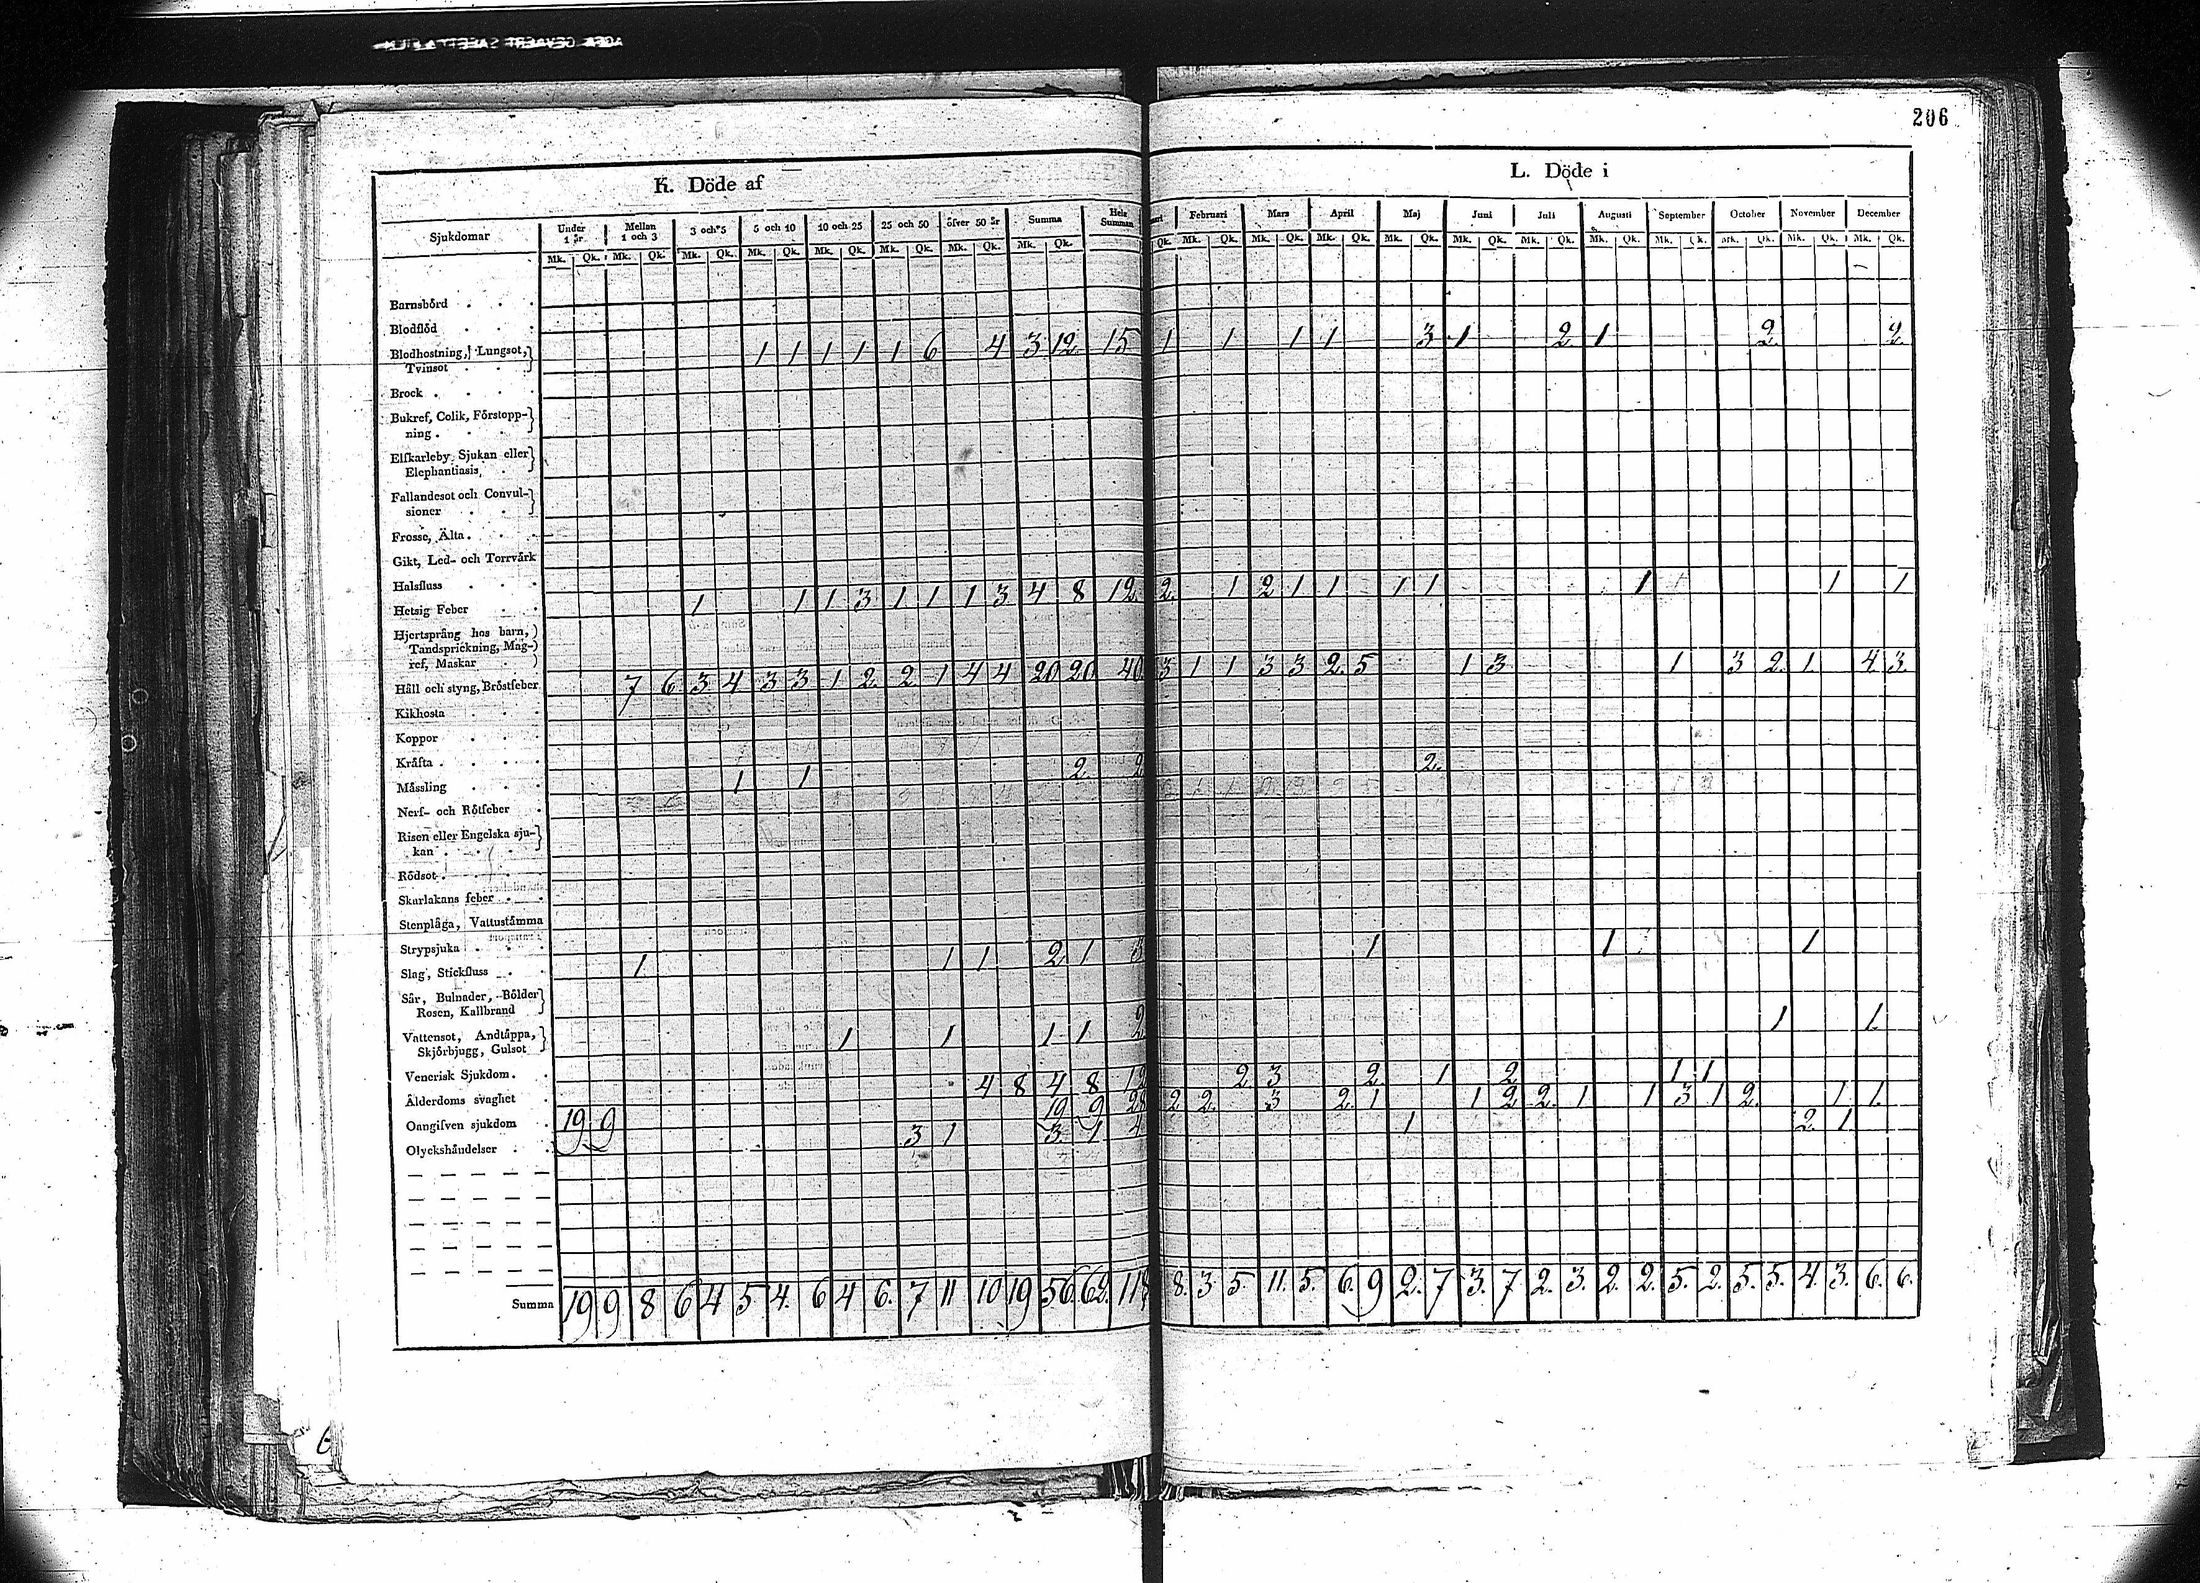 206
K. Döde af
L. Döde i
Sjukdomar
Under 1 år
Mellan 1 och 3
3 och 5
5 och 10
10 och 25
25 och 50
öfver 50 år
Summa
Hela Summan
Februari
Mars
April
Maj
Juni
Juli
Augusti
September
October
November
December
Mk. Qk. Mk. Qk. Mk. Qk. Mk. Qk. Mk. Qk. Mk. Qk. Mk. Qk. Mk. Qk.
Qk. Mk. Qk. Mk. Qk. Mk. Qk. Mk. Qk. Mk. Qk. Mk. Qk. Mk. Qk. Mk. Qk. Mk. Qk. Mk. Qk. Mk. Qk.
Barnsbörd
Blodflöd
Blodhostning, Lungsot, 1 1 1 1 1 6 4 3 12 15 1 1 1 1 3 1 2 1 2 2
Tvinsot
Brock
Bukref, Colik, Förstopp-
ning
Elfkarleby Sjukan eller
Elephantiasis
Fallandesot och Convul-
sioner
Frosse, Älta
Gikt, Led- och Torrvärk
Halsfluss
Hetsig Feber 1 1 1 3 1 1 1 3 4 8 12 2 1 2 1 1 1 1 1 1 1 1
Hjertsprång hos barn,
Tandsprickning, Mag-
ref, Maskar
Håll och styng, Bröstfeber 7 6 3 4 3 3 1 2 2 1 4 4 20 20 40 3 1 1 3 3 2 5 1 3 1 3 2 1 4 3
Kikhosta
Koppor
Kräfta
Mässling 1 1 2 2 2
Nerf- och Rötfeber
Risen eller Engelska sju-
kan
Rödsot
Skarlakans feber
Stenplåga, Vattustämma
Strypsjuka
Slag, Stickfluss 1 1 1 2 1 3 1 1 1
Sår, Bulnader, Bölder
Rosen, Kallbrand
Vattensot, Andtäppa, 1 1 1 1 2 1 1
Skjörbjugg, Gulsot
Venerisk Sjukdom
Ålderdoms svaghet 4 8 4 8 12 2 3 2 1 2 1 1
Oangifven sjukdom 19 9 19 9 28 2 2 3 2 1 1 2 2 1 1 3 1 2 1 1
Olyckshändelser 3 1 3 1 4 1 2 1
Summa 19 9 8 6 4 5 4 6 4 6 7 11 10 19 56 62 118 8 3 5 11 5 6 9 2 7 3 7 2 3 2 2 5 2 5 5 4 3 6 6